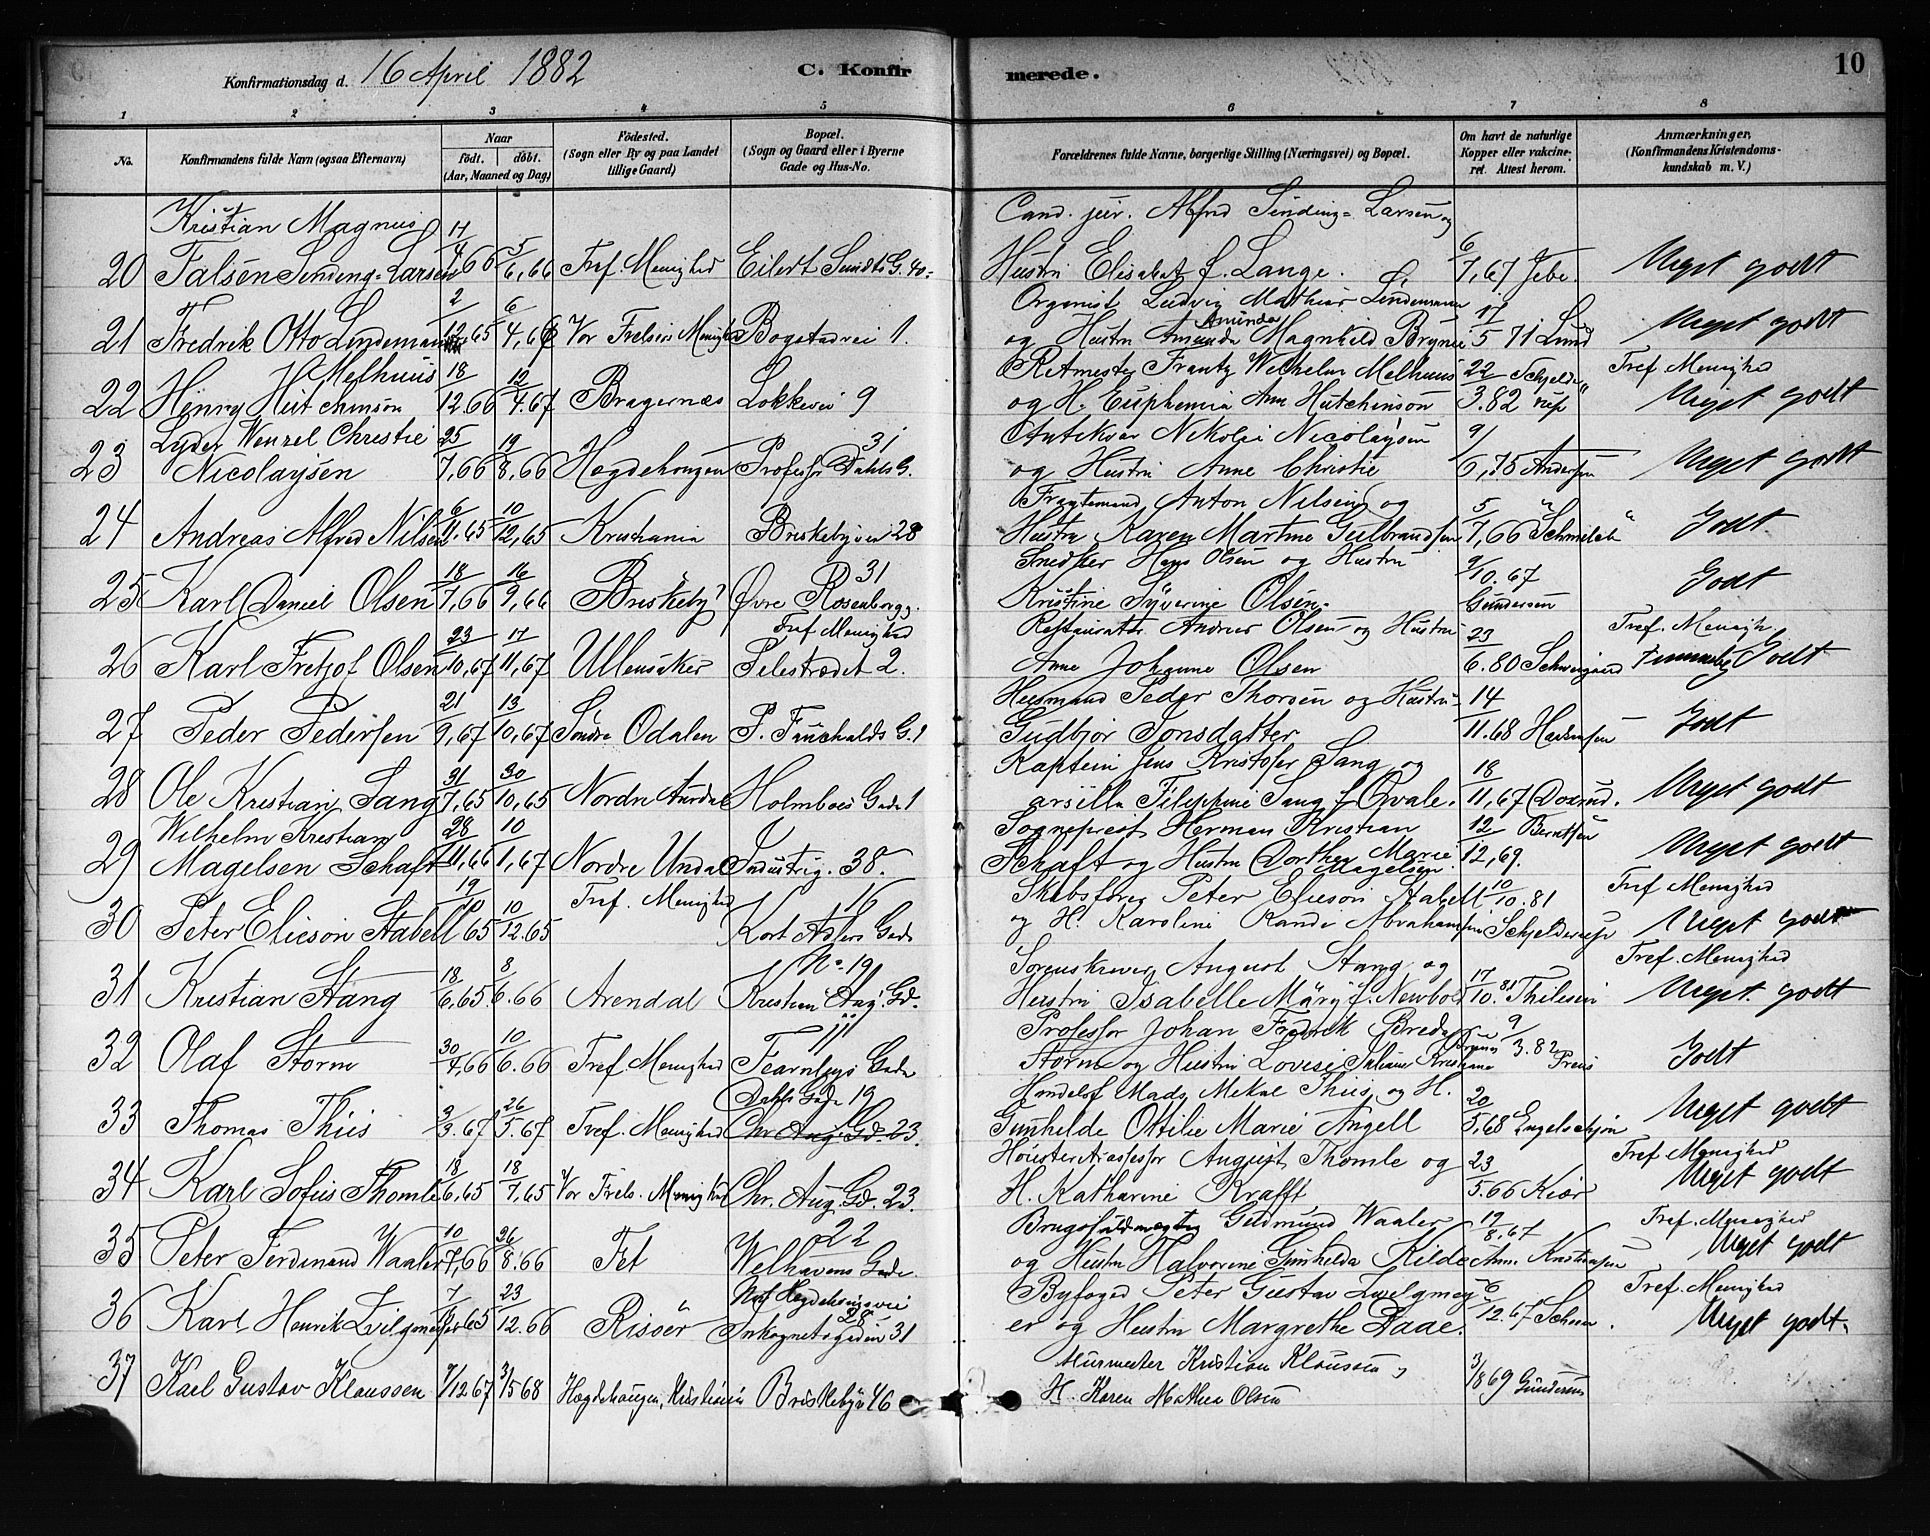 Konfirmationsdag d. 16 April 1882
C. Konfirmerede.
10
1 2 3 4 5 6 7 8
No.
Konfirmandens fulde Navn (ogsaa Efternavn)
Naar
født. døbt.
(Aar, Maaned og Dag)
Fødested.
(Sogn eller By og paa Landet
tillige Gaard)
Bopæl.
(Sogn og Gaard eller i Byerne
Gade og Hus-No.
Forældrenes fulde Navne, borgerlige Stilling (Næringsvei) og Bopæl.
Om havt de naturlige
Kopper eller vakcine-
ret. Attest herom.
Anmærkninger.
(Konfirmandens Kristendoms-
kundskab m. V.)
Kristian Magnus
Cand. jur. Alfred Sinding-Larsen og
20 Falsen Sinding-Larsen 17/4 66 5/6,66 Tref. Menighed Eilert Sundts G. 40. Hustru Elisabet f. Lange. 6/7,67 Jebe. Meget godt
Organist Ludvig Mathias Lindeman
21 Fredrik Otto Lindeman 2/12 65 6/4,66 Vor Frelsers Menighed Bogstadvei 1. og Hustru Amunda Magnhild Brynie 17/5 71 Lund Meget godt
Melhuus
Ritmester Frantz Wilhelm Melhuus
Tref Menighed
22 Henry Hutchinson 18/12 66 12/4.67 Bragernæs Løkkevei 9 og H. Euphemia Ann Hutchinson 22/3.82 Schjelderup Meget godt
Lyder Wenzel Christie
31
Antikvar Nikolai Nicolaysen
23 Nicolaysen 25/7,66 19/8,66 Hægdehougen Professr Dahls G. og Hustru Anne Christie 9/6,75 Andersen Meget godt
Anton Nilsen og
24 Andreas Alfred Nilsen 6/11.65 10/12,65 Kristiania Briskebyvei 28 Hustru Karen Martine Gulbrandsen 5/7,66 Godt
31
Snedker Hans Olsen og Hustru
25 Karl Daniel Olsen 18/7,66 16/9,66 Briskeby Øvre Rosenborgg. Kristine Syverine Olsen. 9/10.67 Gundersen Godt
Tref Menighed
Restauratør Andreas Olsen og Hustru
Tref. Menigh.
26 Karl Fretjof Olsen 23/10,67 17/11,67 Ullensaker Pilestrædet 2. Anne Johanne Olsen 23/6.80 Schweigaard Temmelig Godt
Huusmand Peder Thorsen og Hustru
27 Peder Pedersen 21/9,67 13/10,67 Søndre Odalen P. Fauchalds G. 1 Gudbjør Jonsdatter 14/11.68 Godt
Kaptein Jens Kristofer Sang og
28 Ole Kristian Sang 31/7,65 30/10,65 Nordre Aurdal Holmboes Gade 1 Filippine Sang f. Qvale. 18/11,67 Meget godt
Wilhelm Kristian
Sogneprest Herman Kristian
29 Magelsen Schaft 28/11,66 10/1,67 Nordre Undal Industrig. 38. Schaft og Hustru Dorthea Marie Magelsen 12/12,69. Berntsen Meget godt
Tref. Menighed
16
Skibsfører Peter Elieson Stabell
Tref Menighed
30 Peter Elieson Stabell 19/10 65 10/12.65 Kort Adlers Gade og H. Karoline Randi Abrahamsen 10/10.81 Schjelderup Meget godt
No. 19
Sorenskriver August Stang og
Tref. Menighed
31 Kristian Stang 18/6,65. 8/6.66 Arendal Kristian Aug. Gd. Hustru Isabelle Mary f. Newbold 17/10.81 Thilesen Meget godt
Professor Johan Fredrik Breda
32 Olaf Storm 30/4,66 10/6.66 Tref. Menighed Fearnleys Gade Storm og Hustru Lovise Juliane Kristiane 9/3.82 Preus Godt
Dahls Gade 19
Handelsf Mads Mikal Thiis og H.
33 Thomas Thiis 3/3.67 26/5.67 Tref. Menighed Chr. Aug. Gd. 23. Gunhilde Ottilie Marie Angell 20/5,68 Engelschjøn Meget godt
August Thomle og
Tref. Menighed
34 Karl Sofus Thomle 18/6,65 18/7,65 Vor Frels. Menighed Chr. Aug. Gd. 23. H. Katharine Krafft 23/5.66 Kiær Meget godt
22
Brugsfuldmægtig Gudmund Waaler
Tref. Menighed
35 Peter Ferdinand Waaler 10/7,66 26/8.66 Fet Welhavens Gade. og Hustru Halvorine Gunhilda Kilde 19/8.67 Kristiansen Meget godt
Hægdehougsvei 28
Byfoged Peter Gustav Zwilgmey-
Tref. Menighed
36 Karl Henrik Zwilgmeyer 7/9 65 23/12.66 Risøer Inkognitogaden 31 er og Hustru Margrethe Daae. 6/12.67 Meget godt.
Murmester Kristian Klaussen og
37 Karl Gustav Klaussen 7/12 67 3/5 68 Hægdehaugen, Kristiania Briskebyv 46 H. Karen Mathea Olsen 3/8 69 Gundersen